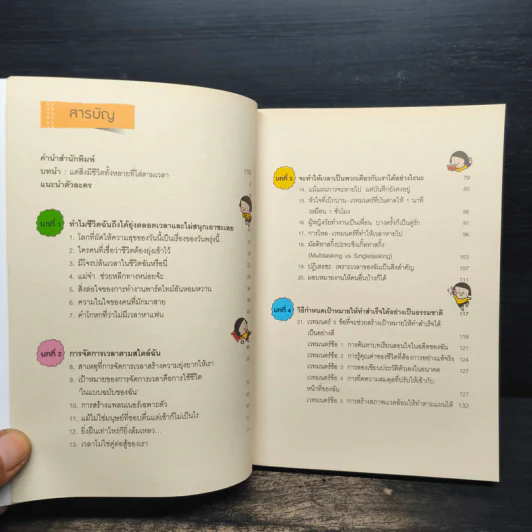 สารบัญ
คำนำสำนักพิมพ์
บทนำ : แด่สิ่งมีชีวิตทั้งหลายที่ไล่ตามเวลา
แนะนำตัวละคร
บทที่ 1
ทำไมชีวิตฉันถึงได้ยุ่งตลอดเวลาและไม่สนุกเอาซะเลย
1. โลกที่มัดให้ความสุขของวันนี้เป็นเรื่องของวันพรุ่งนี้
2. ใครคนที่เชื่อว่าชีวิตต้องยุ่งเข้าไว้
3. มีใครปล้นเวลาในชีวิตฉันหรือนี่
4. แม่จ๋า ช่วยหลีกทางหน่อยจ้ะ
5. สิ่งล่อใจของการทำงานพาร์ตไทม์อันหอมหวาน
6. ความในใจของคนที่มักมาสาย
7. คำโกหกที่ว่าไม่มีเวลาหาแฟน
บทที่ 2
การจัดการเวลาตามสไตล์ฉัน
8. สาเหตุที่การจัดการเวลาสร้างความยุ่งยากให้เรา
9. เป้าหมายของการจัดการเวลาคือการใช้ชีวิต
"ในแบบฉบับของฉัน"
10. การสร้างแพลนเนอร์เฉพาะตัว
11. แม้ไม่ใช่มนุษย์ที่ชอบตื่นแต่เช้าก็ไม่เป็นไร
12. ยิ่งฝืนเท่าไหร่ก็ยิ่งล้มเหลว...
13. เวลาไม่ใช่คู่ต่อสู้ของเรา
บทที่ 3
จะทำให้เวลาเป็นพวกเดียวกับเราได้อย่างไรนะ
79
14. แม้แผนการจะหายไป แต่บันทึกยังคงอยู่
80
15. หัวใจที่เบิกบาน - เวทมนตร์ที่บันดาลให้ 1 นาที
เหมือน 1 ชั่วโมง
16. ผู้หญิงวัยทำงานเป็นเพื่อน บางครั้งก็เป็นคู่รัก
17. การโฟส - เวทมนตร์ที่ทำให้เวลาหายไป
18. มัลติทาสกิ้งปะทะซิงเกิ้ลทาสกิ้ง
(Multitasking vs Singletasking)
103
19. ปฏิเสธซะ เพราะเวลาของฉันเป็นสิ่งสำคัญ
107
20. มอบหมายงานให้คนอื่นบ้างก็ได้
บทที่ 4
วิธีกำหนดเป้าหมายให้ทำสำเร็จได้อย่างเป็นธรรมชาติ
117
21. เวทมนตร์ 5 ข้อที่จะช่วยสร้างเป้าหมายให้ทำสำเร็จได้
เป็นอย่างดี
เวทมนตร์ข้อ 1 การค้นหาบทเรียนสอนใจในอดีตของฉัน
เวทมนตร์ข้อ 2 การรู้คุณค่าของชีวิตที่ต้องการอย่างแท้จริง
121
เวทมนตร์ข้อ 3 การลองเขียนประวัติตัวเองในอนาคต
เวทมนตร์ข้อ 4 การยึดความสมดุลที่ปรับให้เข้ากับ
หน้าที่ของฉัน
127
เวทมนตร์ข้อ 5 การสร้างสภาพแวดล้อมให้ทำตามแผนได้
132